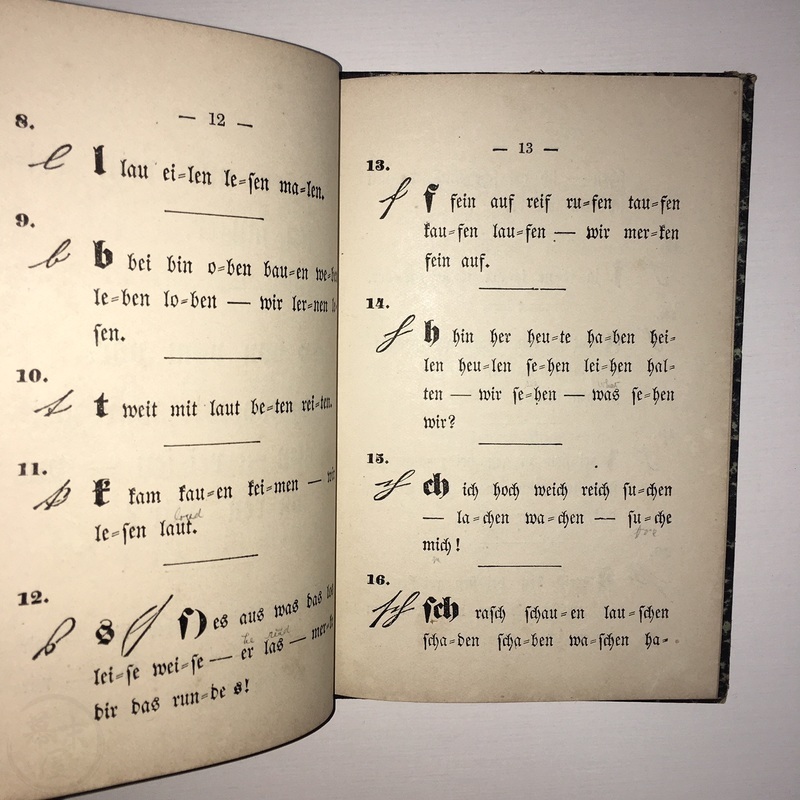 — 12 —
8.
l l lau ei⸗len le⸗sen ma⸗len.
9.
b b bei bin o⸗ben bau⸗en
le⸗ben lo⸗ben — wir ler⸗nen
sen.
10.
t t weit mit laut be⸗ten rei⸗ten.
11.
k k kam kau⸗en kei⸗men —
loud
le⸗sen laut.
12.
s s (ſ) es aus was das
he read
lei⸗se wei⸗se — er las —
dir das run⸗de s!
— 13 —
13.
f f fein auf reif ru⸗fen tau⸗fen
kau⸗fen lau⸗fen — wir mer⸗ken
fein auf.
14.
h h hin her heu⸗te ha⸗ben hei⸗
len heu⸗len se⸗hen lei⸗hen hal⸗
what
ten — wir se⸗hen — was se⸗hen
wir?
15.
ch ch ich hoch weich reich su⸗chen
— la⸗chen wa⸗chen — su⸗che
mich!
16.
sch sch rasch schau⸗en lau⸗schen
scha⸗den scha⸗ben wa⸗schen ha⸗